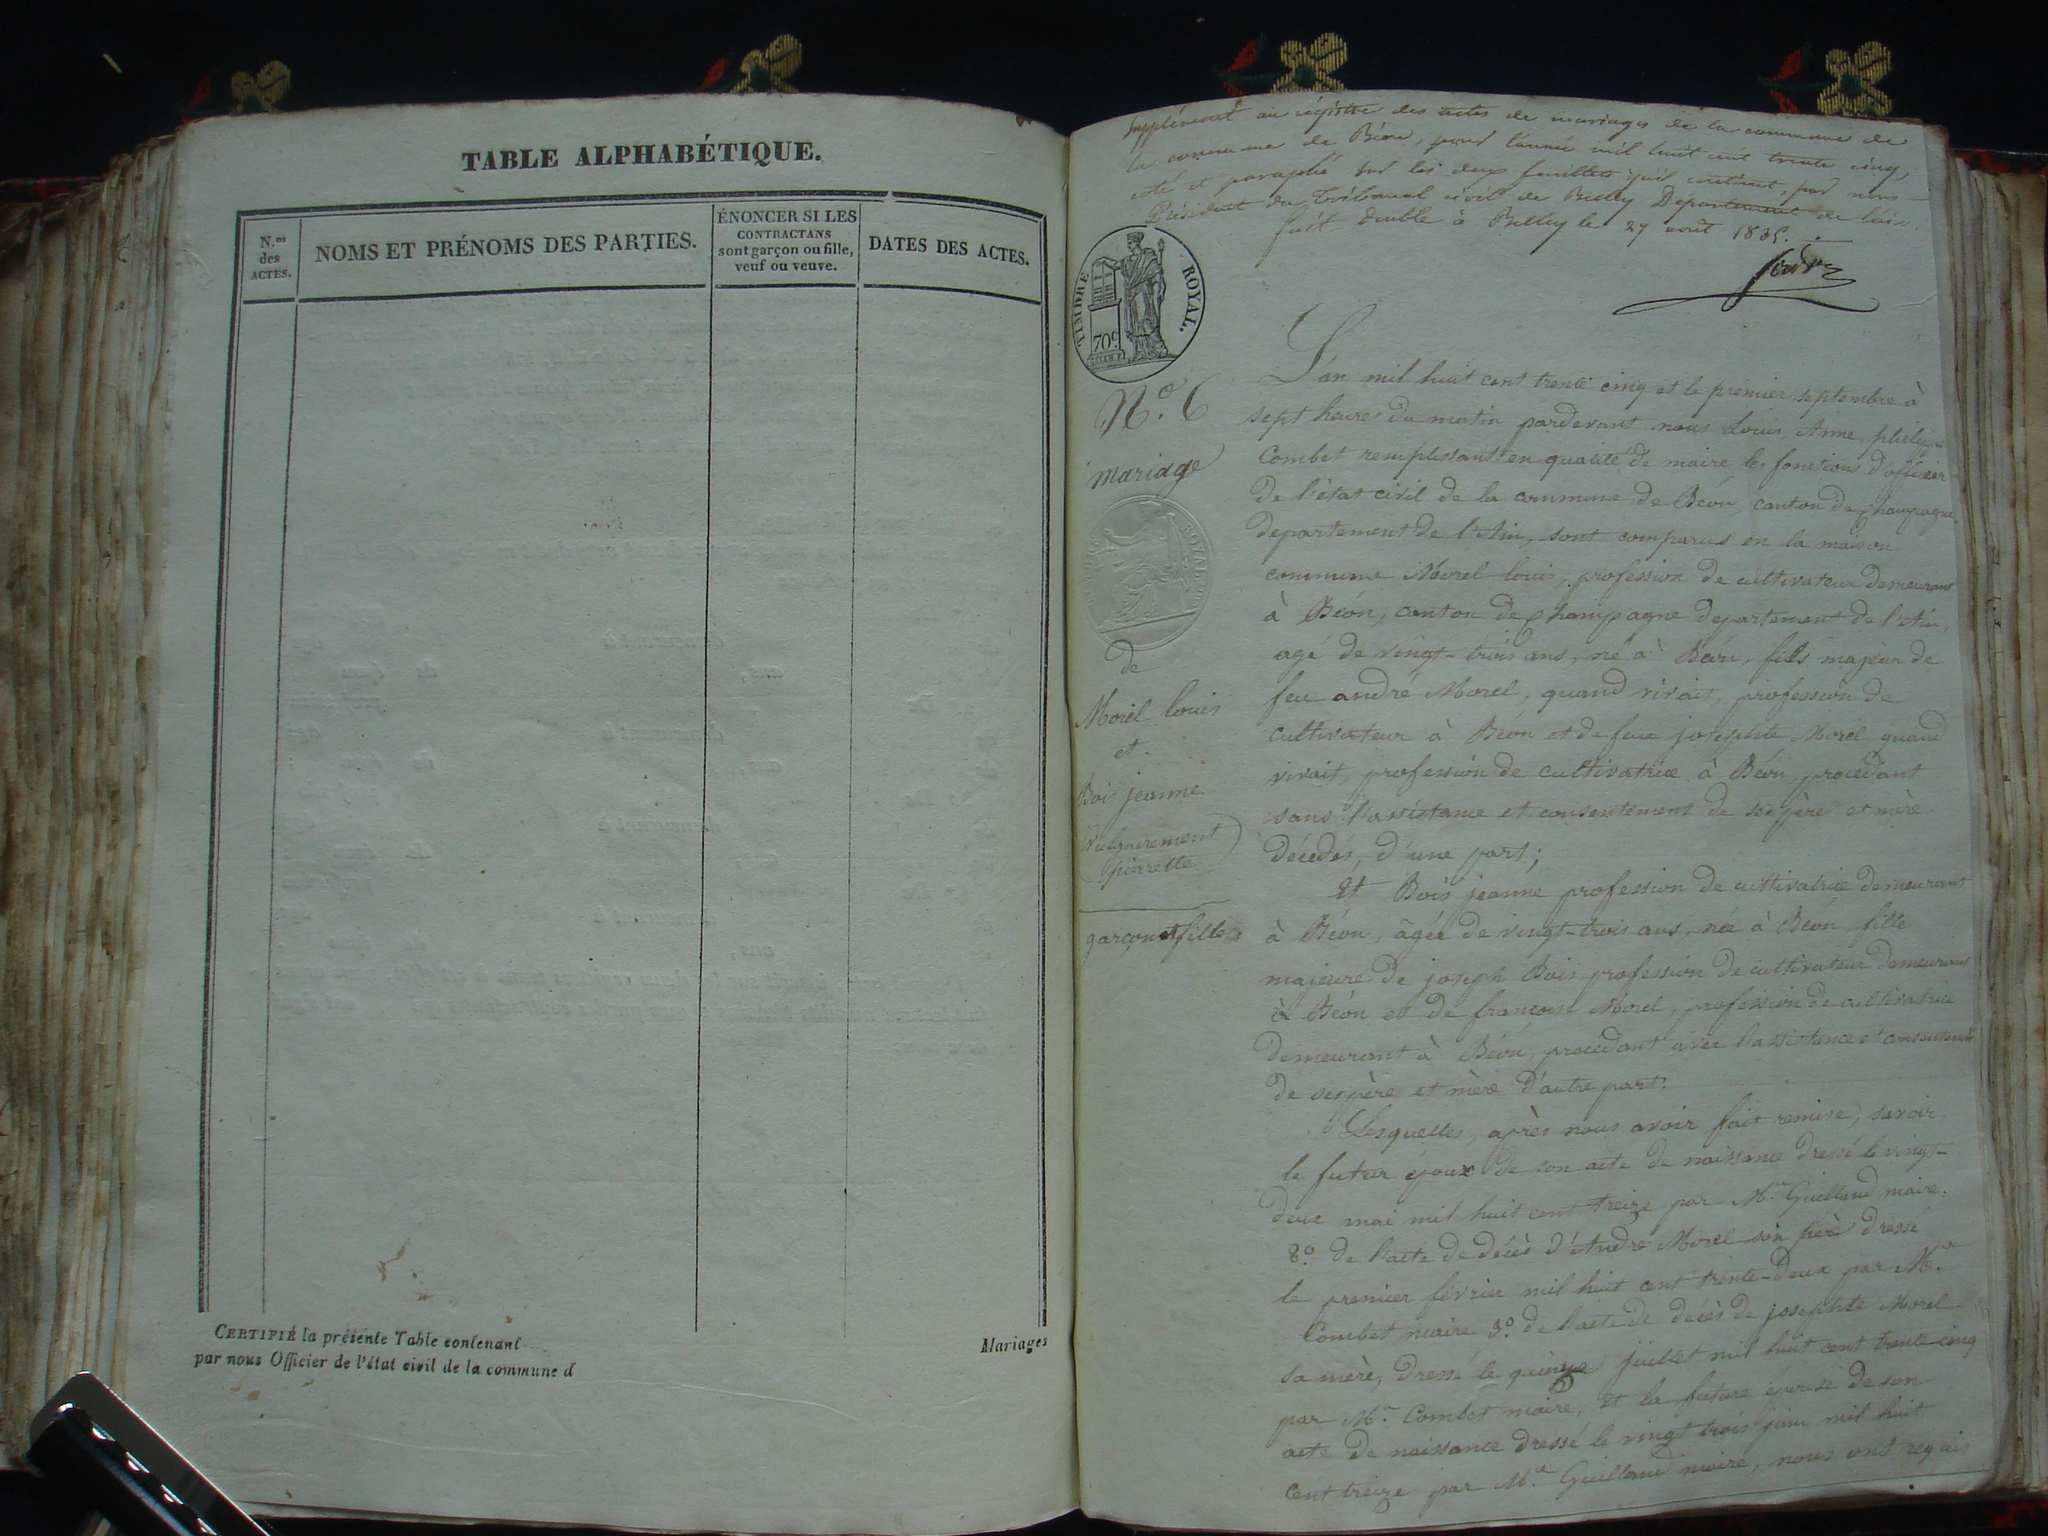 TABLE ALPHABÉTIQUE.
N.os des ACTES.
NOMS ET PRÉNOMS DES PARTIES.
ÉNONCER SI LES
CONTRACTANS
sont garçon ou fille,
veuf ou veuve.
DATES DES ACTES.
CERTIFIÉ la présente Table contenant
par nous Officier de l'état civil de la commune d
Mariages
Supplément au régistre des actes de mariages de la commune de
la commune de Béon, pour l'année mil huit cent trente cinq,
coté et paraphé sur les deux feuillets qu'il contient, par nous
Président du Tribunal civil de Belley Département de l'ain.
fait double à Belley le 27 août 1835.
TIMBRE ROYAL.
70c
N.o 6
mariage
de
Morel louis
et
Bois jeanne
(vulgairement
pierrette)
garçon et fille
L'an mil huit cent trente cinq et le premier septembre à
sept heures du matin pardevant nous Louis, Anne, philippe
Combet remplissant en qualité de maire les fonctions d'officier
de l'état civil de la commune de Béon, canton de Champagne
departement de l'Ain, sont comparus en la maison
commune Morel louis, profession de cultivateur demeurant
à Béon, canton de Champagne departement de l'Ain,
agé de vingt-trois ans, né à Béon, fils majeur de
feu andré Morel, quand vivait, profession de
cultivateur à Béon et de feue josephte Morel quand
vivait, profession de cultivatrice à Béon, procédant
sans l'assistance et consentement de ses père et mère
décédés, d'une part;
Et Bois jeanne profession de cultivatrice demeurant
à Béon, âgée de vingt-trois ans, née à Béon, fille
majeure de joseph Bois profession de cultivateur demeurant
à Béon et de françoise Morel, profession de cultivatrice
demeurant à Béon, procédant avec l'assistance et consentement
de ses père et mère d'autre part.
Lesquelles, après nous avoir fait remise, savoir
le futur époux de son acte de naissance dressé le vingt-
deux mai mil huit cent treize par Mr Guilland maire.
2o. de l'acte de décès d'André Morel son père dressé
le premier février mil huit cent trente-deux par Mr
Combet maire 3o. de l'acte de décès de josephte Morel
sa mère, dressé le quinze juillet mil huit cent trente cinq
par Mr Combet maire, et la future épouse de son
acte de naissance dressé le vingt trois juin mil huit
cent treize par Mr Guilland maire, nous ont requis